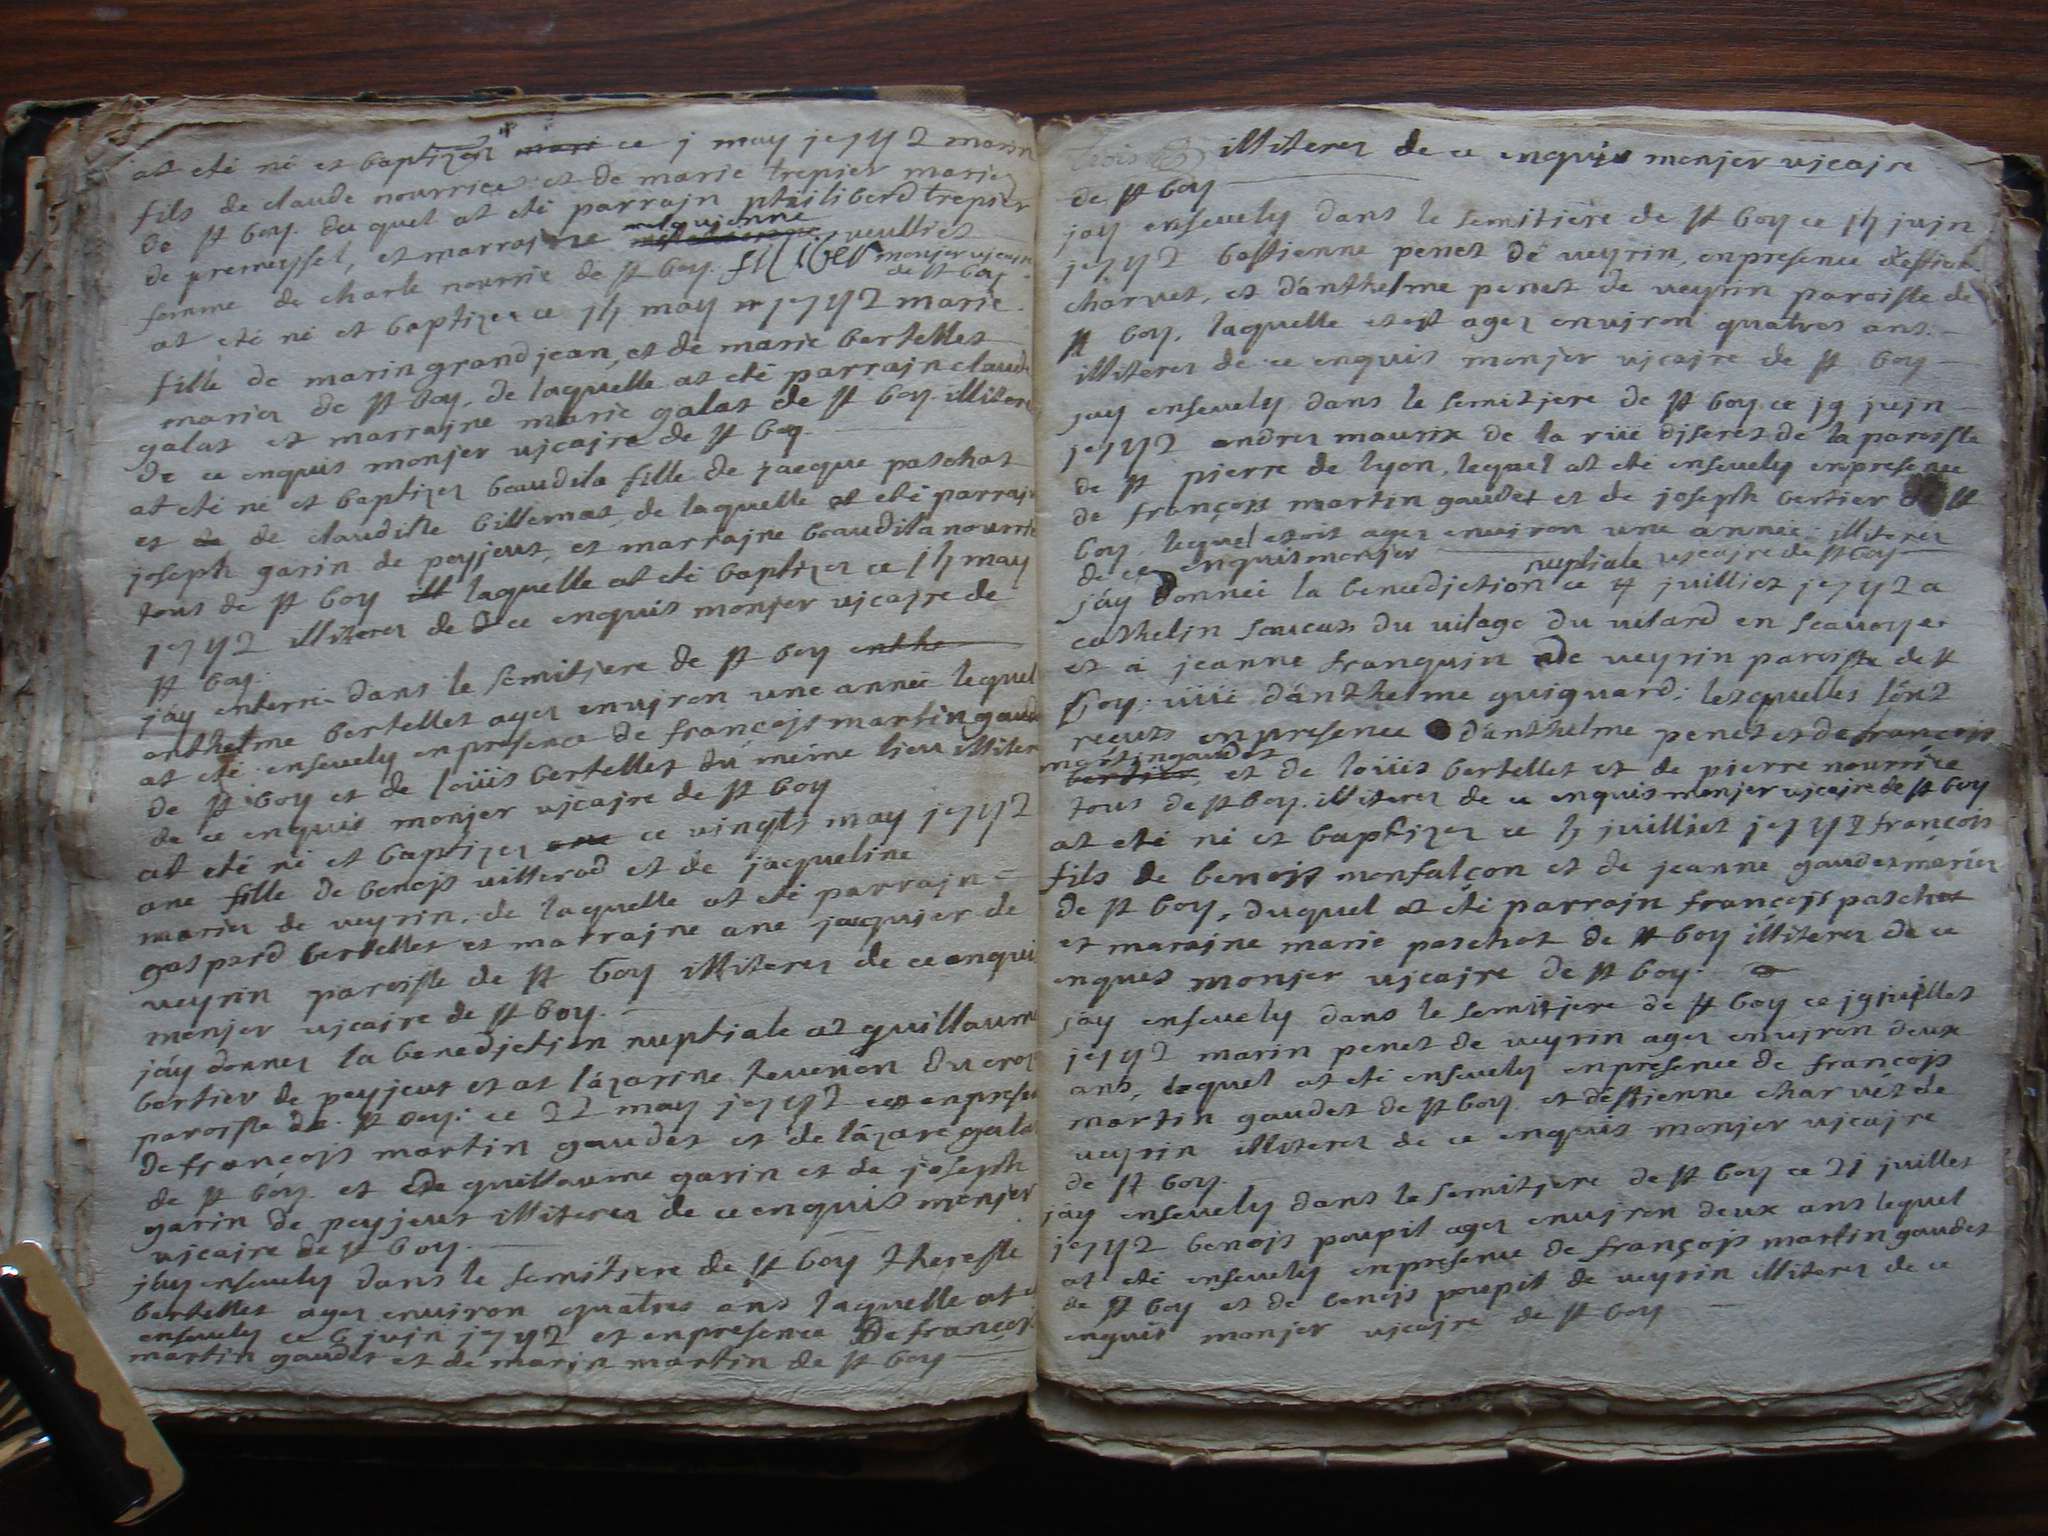 at eté né et baptizer mari ce j may je7y2 marin
fils de claude nourrice et de marie trepier mariez
de st boy. du quel at eté parrain philiberd trepier
de premeyssel, et marrajne melquienne veulliet
femme de charle nourrie de st boy. monjer vjcajre
de st boy
at eté né et baptizer ce jh may je7y2 marie
fille de marin grand jean, et de marie bertellet
mariez de st boy. de laquelle at eté parrajn claude
galat et marrajne marie galat de st boy. illiterez
de ce enquis monjer vjcajre de st boy.
at eté né et baptizer beaudila fille de jacque paschot
et de de claudille billemaz de laquelle at eté parrajn
joseph garin de peyjeut, et marrajne beaudila nourrie
tous de st boy ill laquelle at eté baptizer ce jh may
je7y2 illiterez de ce enquis monjer vjcajre de
st boy.
jáy enterré dans le semitjere de st boy
anthelme bertellet agez envjron une anneé lequel
at eté ensevely enpresence de françojs martin gaudet
de st boy et de loüis bertellet du même lieu illiterez
de ce enquis monjer vjcajre de st boy
at eté né et baptizer ane ce vingts may je7y2
ane fille de benojs vitterod et de jacqueline
mariez de veyrin. de laquelle at eté parrajn
gaspard bertellet et marrajne ane jacquier de
veyrin paroisse de st boy illiterez de ce enquis
monjer vjcajre de st boy.
jáy donnez la benedjctjon nuptiale at guillaume
bertier de peyjeut et at lázarine tevenon du croz
paroisse de st boy. ce 22 may je7y2 enpresence
de françojs martin gaudet et de lázare galat
de st boy et de guillaume garin et de joseph
garin de peyjeut illiterez de ce enquis monjer
vjcajre de st boy.
jáy ensevely dans le semitjere de st boy theresse
bertellet agez environ quatres ans laquelle at eté
ensevely ce 6 jujn je7y2 et enpresence de françojs
martin gaudet et de marin martin de st boy
illiterez de ce enquis monjer vjcajre
de st boy
jáy ensevely dans le semitière de st boy ce jh jujn
je7y2 bastienne penet de veyrin, enpresence d'estienne
charvet, et dánthelme penet de veyrin paroisse de
st boy, laquelle est agez environ quatres ans.
illiterez de ce enquis monjer vjcajre de st boy
jay ensevely dans le semitjere de st boy ce j9 jujn
je7y2 andrez maurix de la rüe djseret de la paroisse
de st pierre de lyon, lequel at eté ensevely enpresence
de françojs martin gaudet et de joseph bertier de st
boy. lequel etoit agez environ une anneé. illiterez
de ce enquis monjer vjcajre de st boy
jáy donneé la benedjction nuptiale ce 4 juilliet je7y2 a
cathelin soucas du vilage du vilard en scavoye
et á jeanne franquin de veyrin paroisse de st
boy. viüe dánthelme guiguard: lesquelles sont
recuts enpresence dánthelme penet et de françois
martin gaudet
bertier, et de loüis bertellet et de pierre nourrice
tous de st boy. illiterez de ce enquis monjer vjcajre de st boy
at eté né et baptizer ce h juilliet je7y2 françois
fils de benojs monfalcon et de jeanne gaudet mariez
de st boy, duquel at eté parrajn françojs paschot
et marajne marie paschot de st boy illiterez de ce
enques monjer vjcajre de st boy.
jáy ensevely dans le semitjere de st boy ce j9 juillet
je7y2 marin penet de veyrin agez envjron deux
ans, lequel at eté ensevely enpresence de françojs
martin gaudet de st boy et déstienne charvet de
veyrin illiterez de ce enquis monjer vjcajre
de st boy.
jáy ensevely dans le semitjere de st boy ce 21 juillet
je7y2 benojs poupit agez envjron deux ans lequel
at eté ensevely enpresence de françojs martin gaudet
de st boy et de benojs poupit de veyrin illiterez de ce
enquis monjer vjcajre de st boy